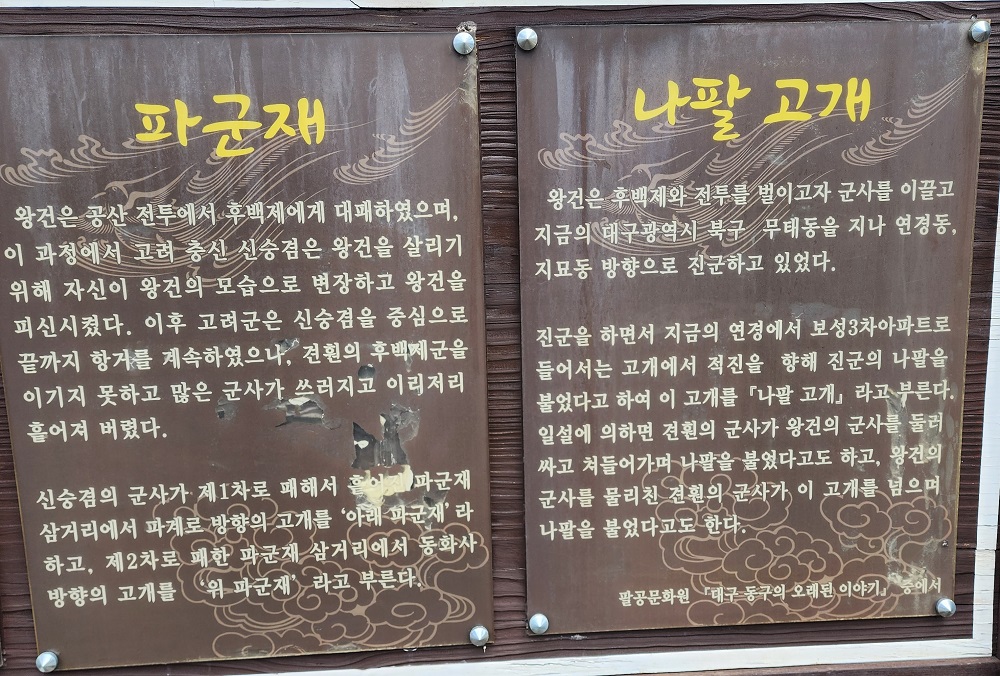 파군재
왕건은 공산 전투에서 후백제에게 대패하였으며,
이 과정에서 고려 충신 신숭겸은 왕건을 살리기
위해 자신이 왕건의 모습으로 변장하고 왕건을
피신시켰다. 이후 고려군은 신숭겸을 중심으로
끝까지 항거를 계속하였으나, 견훤의 후백제군을
이기지 못하고 많은 군사가 쓰러지고 이리저리
흩어져 버렸다.
신숭겸의 군사가 제1차로 패해서 파군재
삼거리에서 파계로 방향의 고개를 ‘아래 파군재’라
하고, 제2차로 패한 파군재 삼거리에서 동화사
방향의 고개를 ‘위 파군재’ 라고 부른다.
나팔 고개
왕건은 후백제와 전투를 벌이고자 군사를 이끌고
지금의 대구광역시 북구 무태동을 지나 연경동,
지묘동 방향으로 진군하고 있었다.
진군을 하면서 지금의 연경에서 보성3차아파트로
들어서는 고개에서 적진을 향해 진군의 나팔을
불었다고 하여 이 고개를 『나팔 고개』 라고 부른다.
일설에 의하면 견훤의 군사가 왕건의 군사를 둘러
싸고 쳐들어가며 나팔을 불었다고도 하고, 왕건의
군사를 물리친 견훤의 군사가 이 고개를 넘으며
나팔을 불었다고도 한다.
팔공문화원 『대구 동구의 오래된 이야기』 중에서